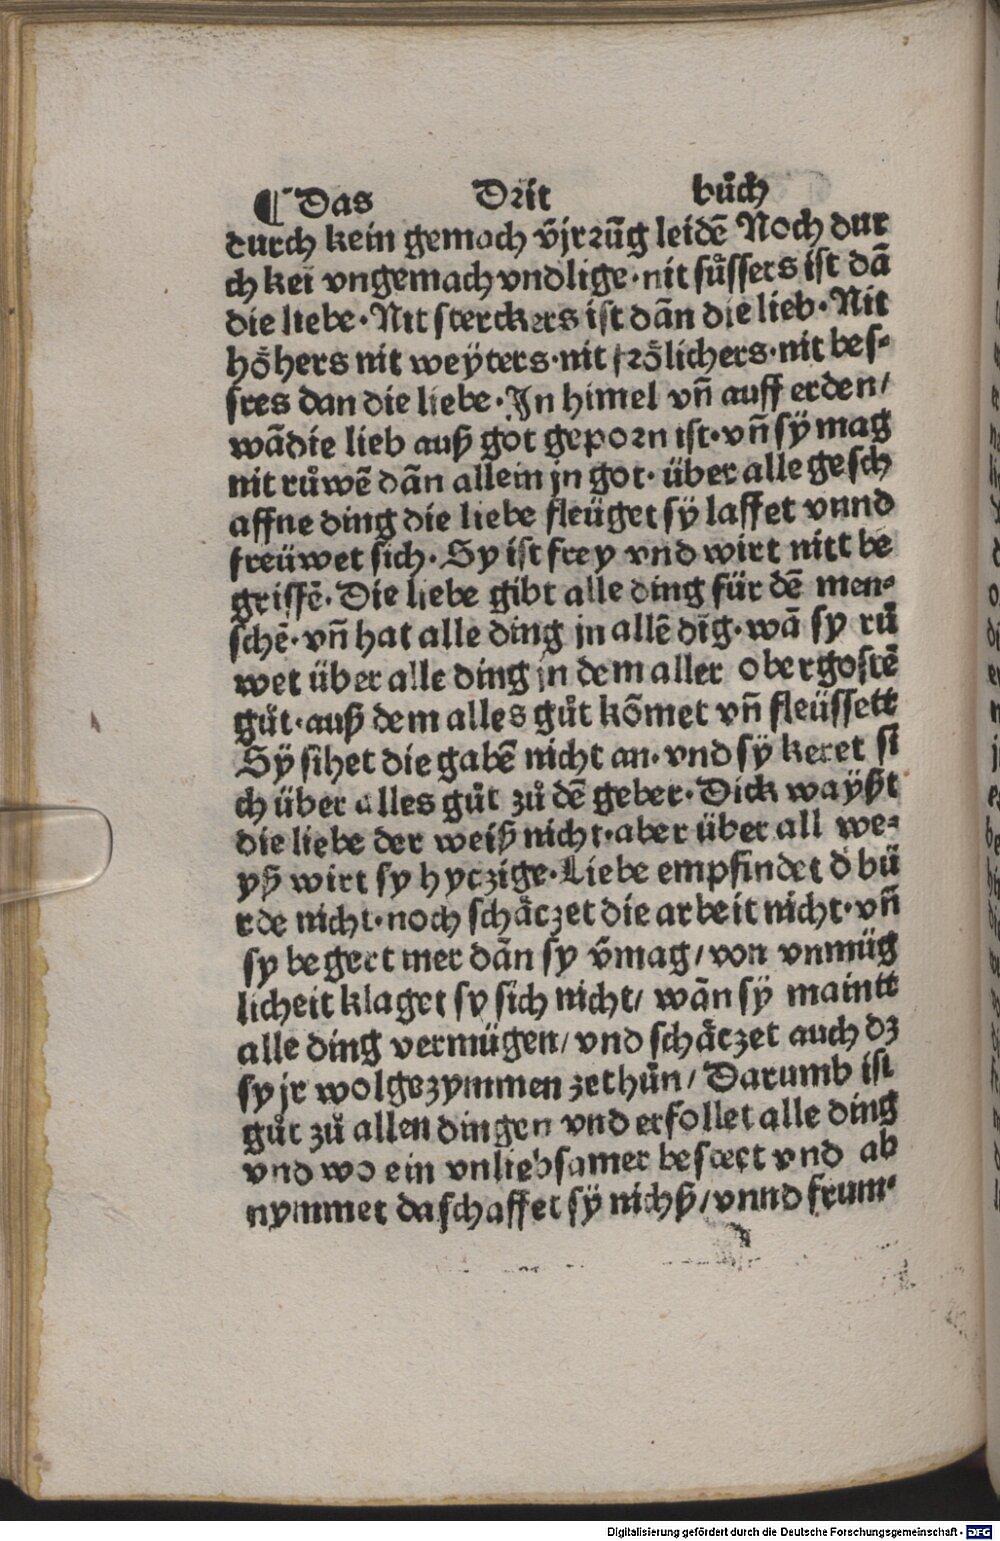 ¶ Das Drit bůch
durch kein gemach v̄jrrūg leidē Noch dur
ch kei vngemach vndlige·nit sůssers ist dā
die liebe·Nit sterckers ist dān die lieb·Nit
hőhers nit weÿters·nit frőlichers·nit bes⸗
sres dan die liebe·In himel vn̄ auff erden/
wādie lieb auß got geporn ist·vn̄ sÿ mag
nit růwē dān allein jn got· über alle gesch
affne ding die liebe fleüget sÿ laffet vnnd
freüwet sich·Sy ist frey vnd wirt nitt be
griffē·Die liebe gibt alle ding für dē men⸗
schē·vn̄ hat alle ding jn allē dīg·wā sy rů
wet über alle ding jn dem aller obergostē
gůt·auß dem alles gůt kōmet vn̄ fleüssett
Sÿ sihet die gabē nicht an·vnd sÿ keret si
ch über alles gůt zů dē geber·Dick waÿßt
die liebe der weiß nicht·aber über all we⸗
yß wirt sy hyczige·Liebe empfindet d bü
rde nicht·noch schåczet die arbeit nicht·vn̄
sy begert mer dān sy v̄mag/von vnmüg
licheit klaget sy sich nicht/ wān sÿ maintt
alle ding vermügen/vnd schåczet auch dz
sy jr wolgezymmen zethůn/Darumb ist
gůt zů allen dingen vnd erfollet alle ding
vnd wo ein vnliebsamer besteet vnd ab
nymmet da schaffet sÿ nichß/vnnd frum⸗
Digitalisierung gefördert durch die Deutsche Forschungsgemeinschaft - DFG